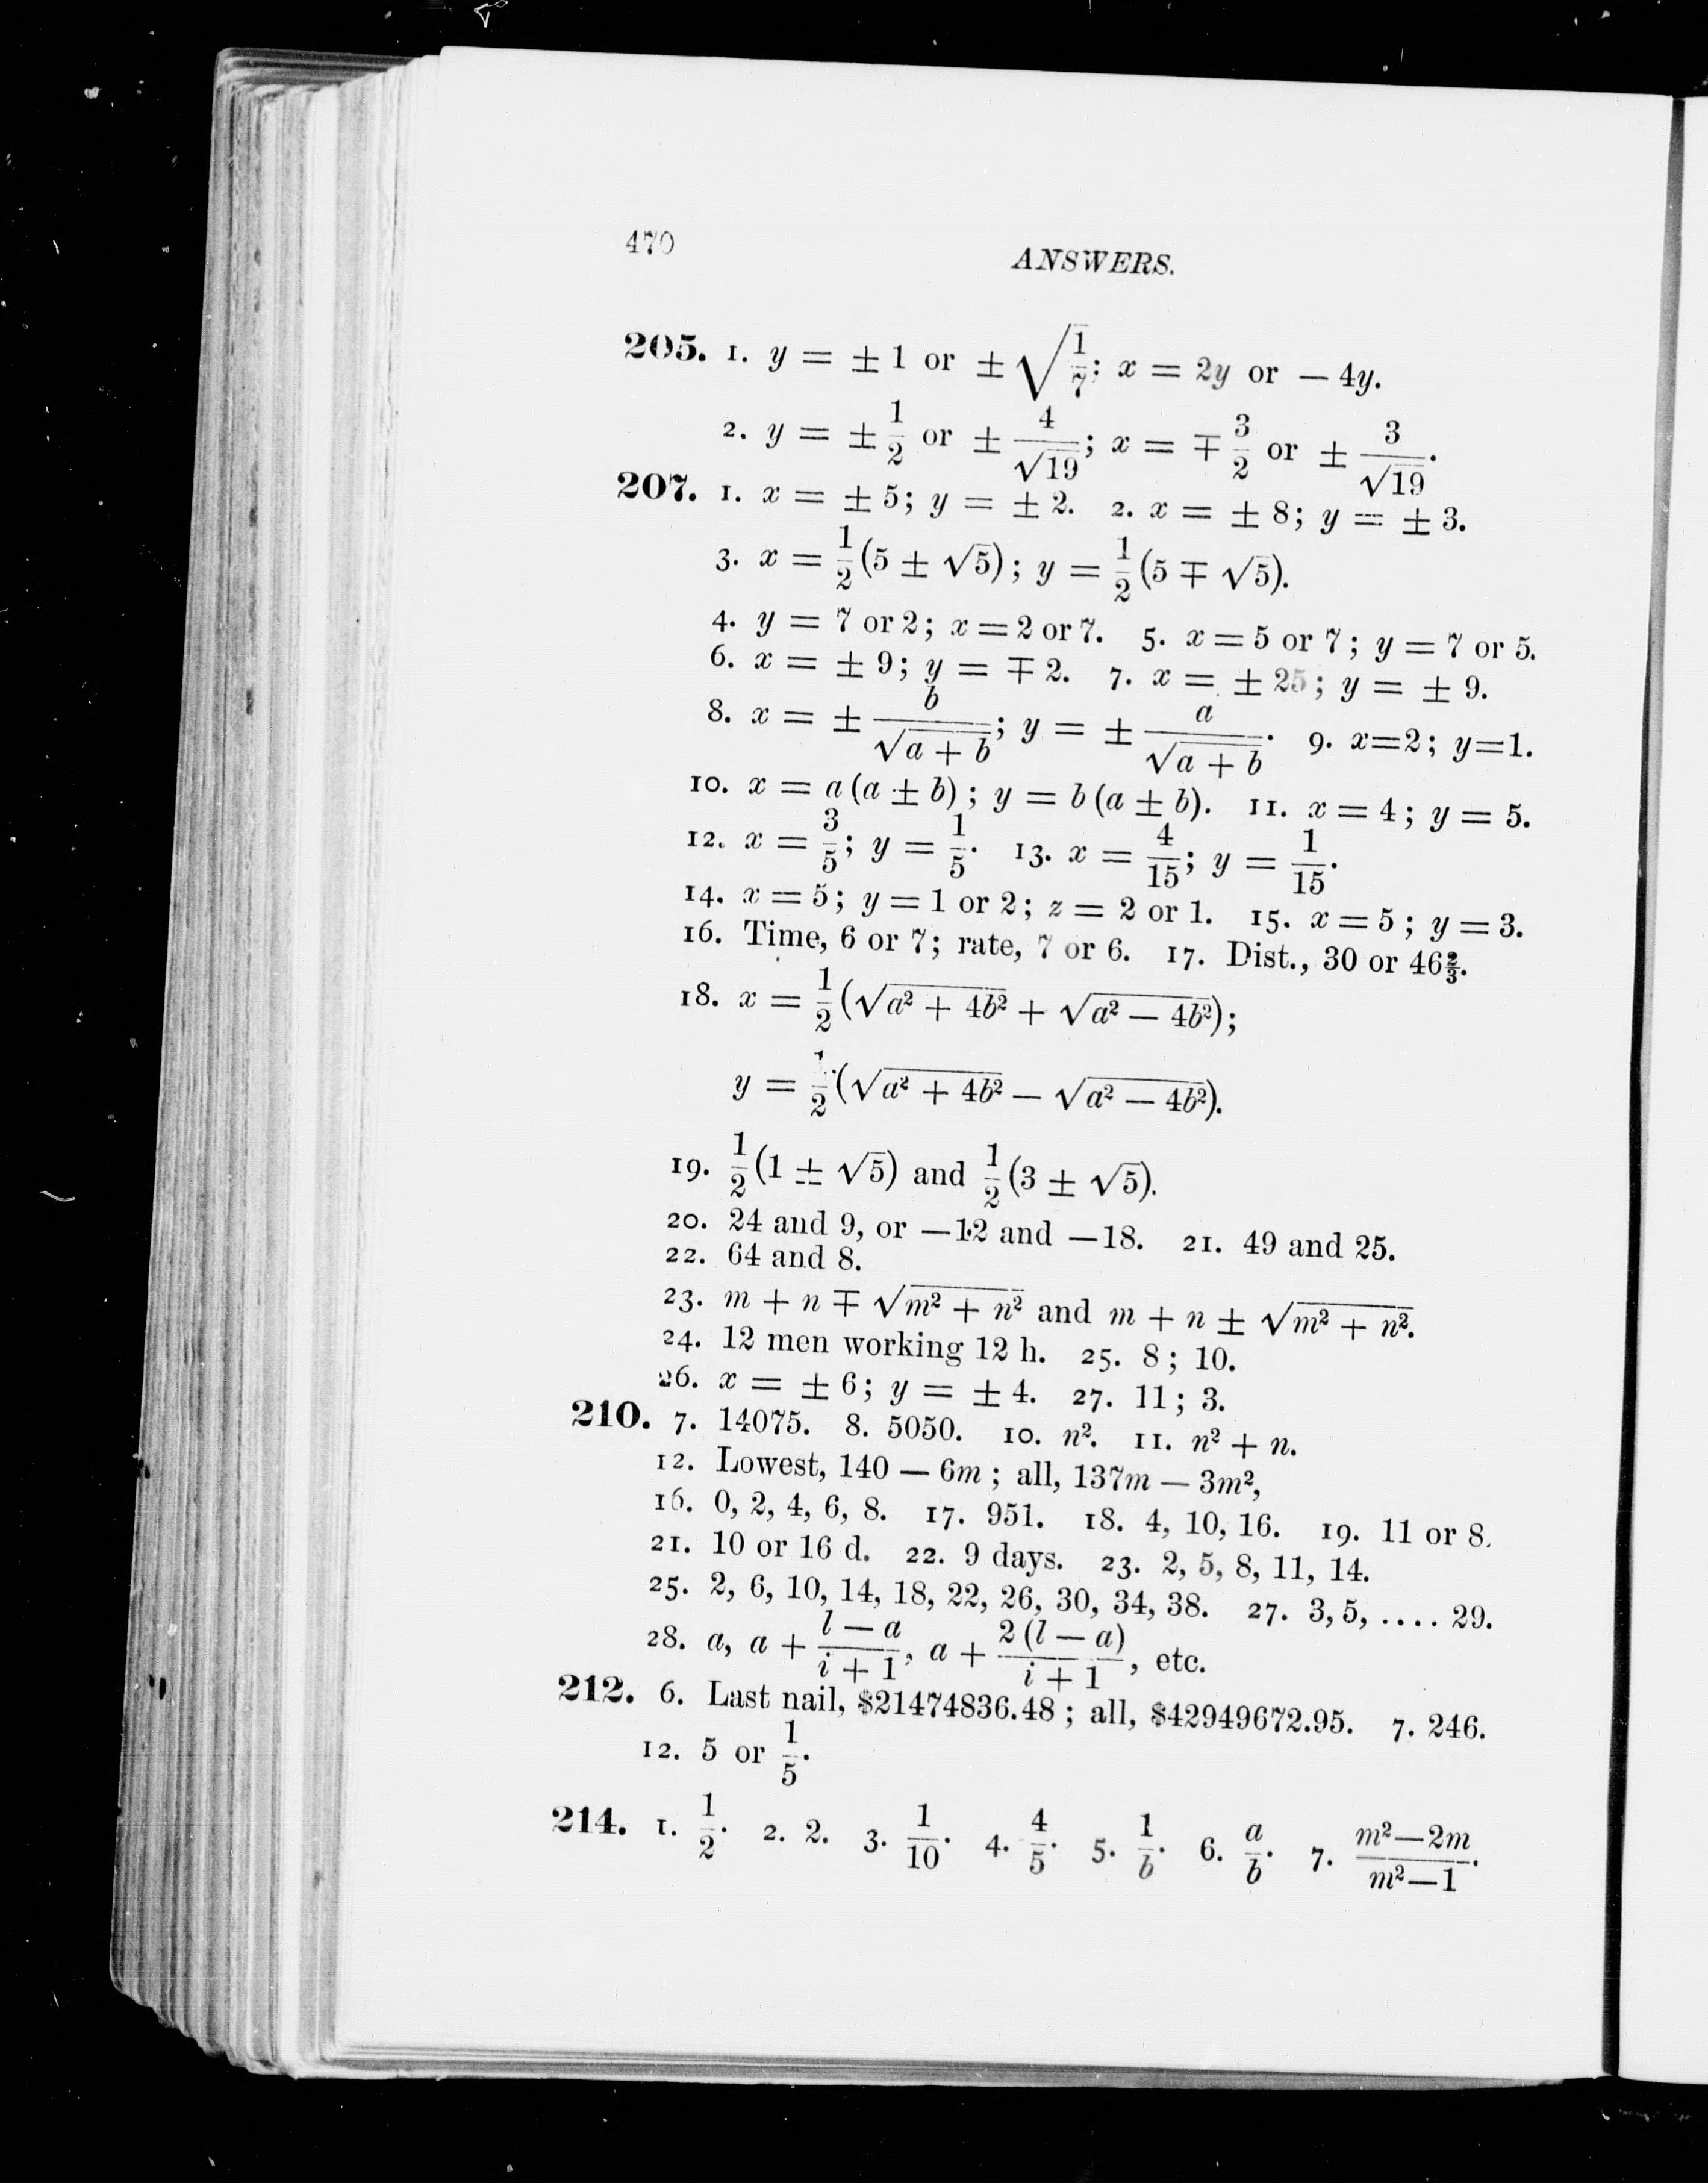 470
ANSWERS.
205. 1. y = ± 1 or ± √(1/7); x = 2y or — 4y.
2. y = ± 1/2 or ± 4/√19; x = ∓ 3/2 or ± 3/√19.
207. 1. x = ± 5; y = ± 2. 2. x = ± 8; y = ± 3.
3. x = 1/2(5 ± √5); y = 1/2(5 ∓ √5).
4. y = 7 or 2; x = 2 or 7. 5. x = 5 or 7; y = 7 or 5.
6. x = ± 9; y = ∓ 2. 7. x = ± 25; y = ± 9.
8. x = ± b/√(a + b); y = ± a/√(a + b). 9. x=2; y=1.
10. x = a(a ± b); y = b(a ± b). 11. x = 4; y = 5.
12. x = 3/5; y = 1/5. 13. x = 4/15; y = 1/15.
14. x = 5; y = 1 or 2; z = 2 or 1. 15. x = 5; y = 3.
16. Time, 6 or 7; rate, 7 or 6. 17. Dist., 30 or 46⅔.
18. x = 1/2(√(a² + 4b²) + √(a² — 4b²));
y = 1/2(√(a² + 4b²) — √(a² — 4b²)).
19. 1/2(1 ± √5) and 1/2(3 ± √5).
20. 24 and 9, or —12 and —18. 21. 49 and 25.
22. 64 and 8.
23. m + n ∓ √(m² + n²) and m + n ± √(m² + n²).
24. 12 men working 12 h. 25. 8; 10.
26. x = ± 6; y = ± 4. 27. 11; 3.
210. 7. 14075. 8. 5050. 10. n². 11. n² + n.
12. Lowest, 140 — 6m; all, 137m — 3m²,
16. 0, 2, 4, 6, 8. 17. 951. 18. 4, 10, 16. 19. 11 or 8.
21. 10 or 16 d. 22. 9 days. 23. 2, 5, 8, 11, 14.
25. 2, 6, 10, 14, 18, 22, 26, 30, 34, 38. 27. 3, 5, .... 29.
28. a, a + (l — a)/(i + 1), a + 2(l — a)/(i + 1), etc.
212. 6. Last nail, $21474836.48; all, $42949672.95. 7. 246.
12. 5 or 1/5.
214. 1. 1/2. 2. 2. 3. 1/10. 4. 4/5. 5. 1/b. 6. a/b. 7. (m²—2m)/(m²—1).